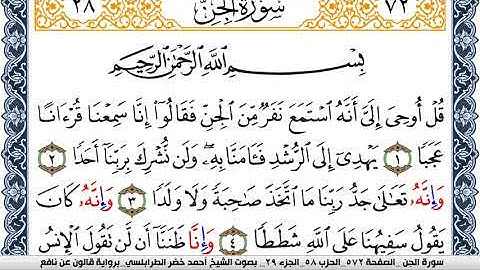 ٢٨ سُورَةُ الجِنِّ ٧٢
بِسْمِ اللَّهِ الرَّحْمَٰنِ الرَّحِيمِ
قُلْ أُوحِيَ إِلَيَّ أَنَّهُ اسْتَمَعَ نَفَرٌ مِّنَ الْجِنِّ فَقَالُوٓاْ إِنَّا سَمِعْنَا قُرْءَانًا
عَجَبًا ١ يَهْدِي إِلَى الرُّشْدِ فَـَٔامَنَّا بِهِۦ وَلَن نُّشْرِكَ بِرَبِّنَا أَحَدًا ٢
وَإِنَّهُۥ تَعَٰلَىٰ جَدُّ رَبِّنَا مَا اتَّخَذَ صَٰحِبَةً وَلَا وَلَدًا ٣ وَإِنَّهُۥ كَانَ
يَقُولُ سَفِيهُنَا عَلَى اللَّهِ شَطَطًا ٤ وَإِنَّا ظَنَنَّا أَن لَّن تَقُولَ الْإِنسُ
سورة الجن_ الصفحة ٥٧٢_ الحزب ٥٨_ الجزء ٢٩_ بصوت الشيخ أحمد خضر الطرابلسي_ برواية قالون عن نافع